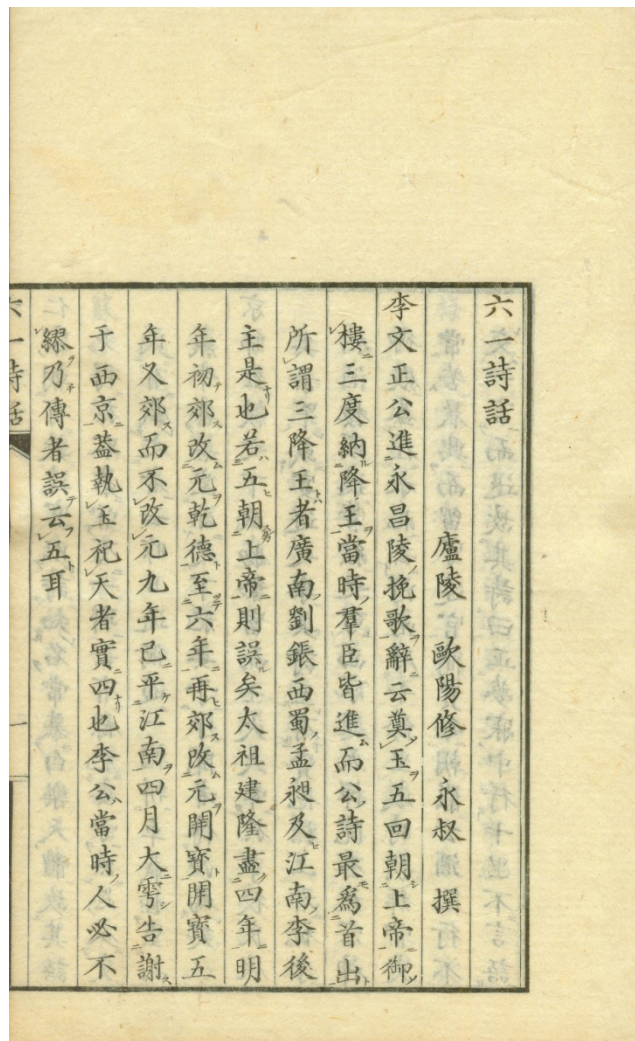 六一詩話
廬陵　歐陽修　永叔　撰
李文正公進永昌陵挽歌辭云奠玉五回朝上帝御
樓三度納降王當時羣臣皆進而公詩最爲首出
所謂三降王者廣南劉鋹西蜀孟昶及江南李後
主是也若五朝上帝則誤矣太祖建隆盡四年明
年初郊改元乾德至六年再郊改元開寶開寶五
年又郊而不改元九年已平江南四月大雩告謝
于西京蓋執玉祀天者實四也李公當時人必不
繆乃傳者誤云五耳
六一詩話
一